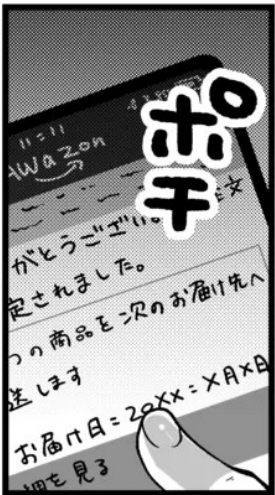 ポチ
11:11
AWazon
がとうござい
文
定されました。
つの商品を次のお届け先へ
送します
お届け日:20XX:X月X日
細を見る